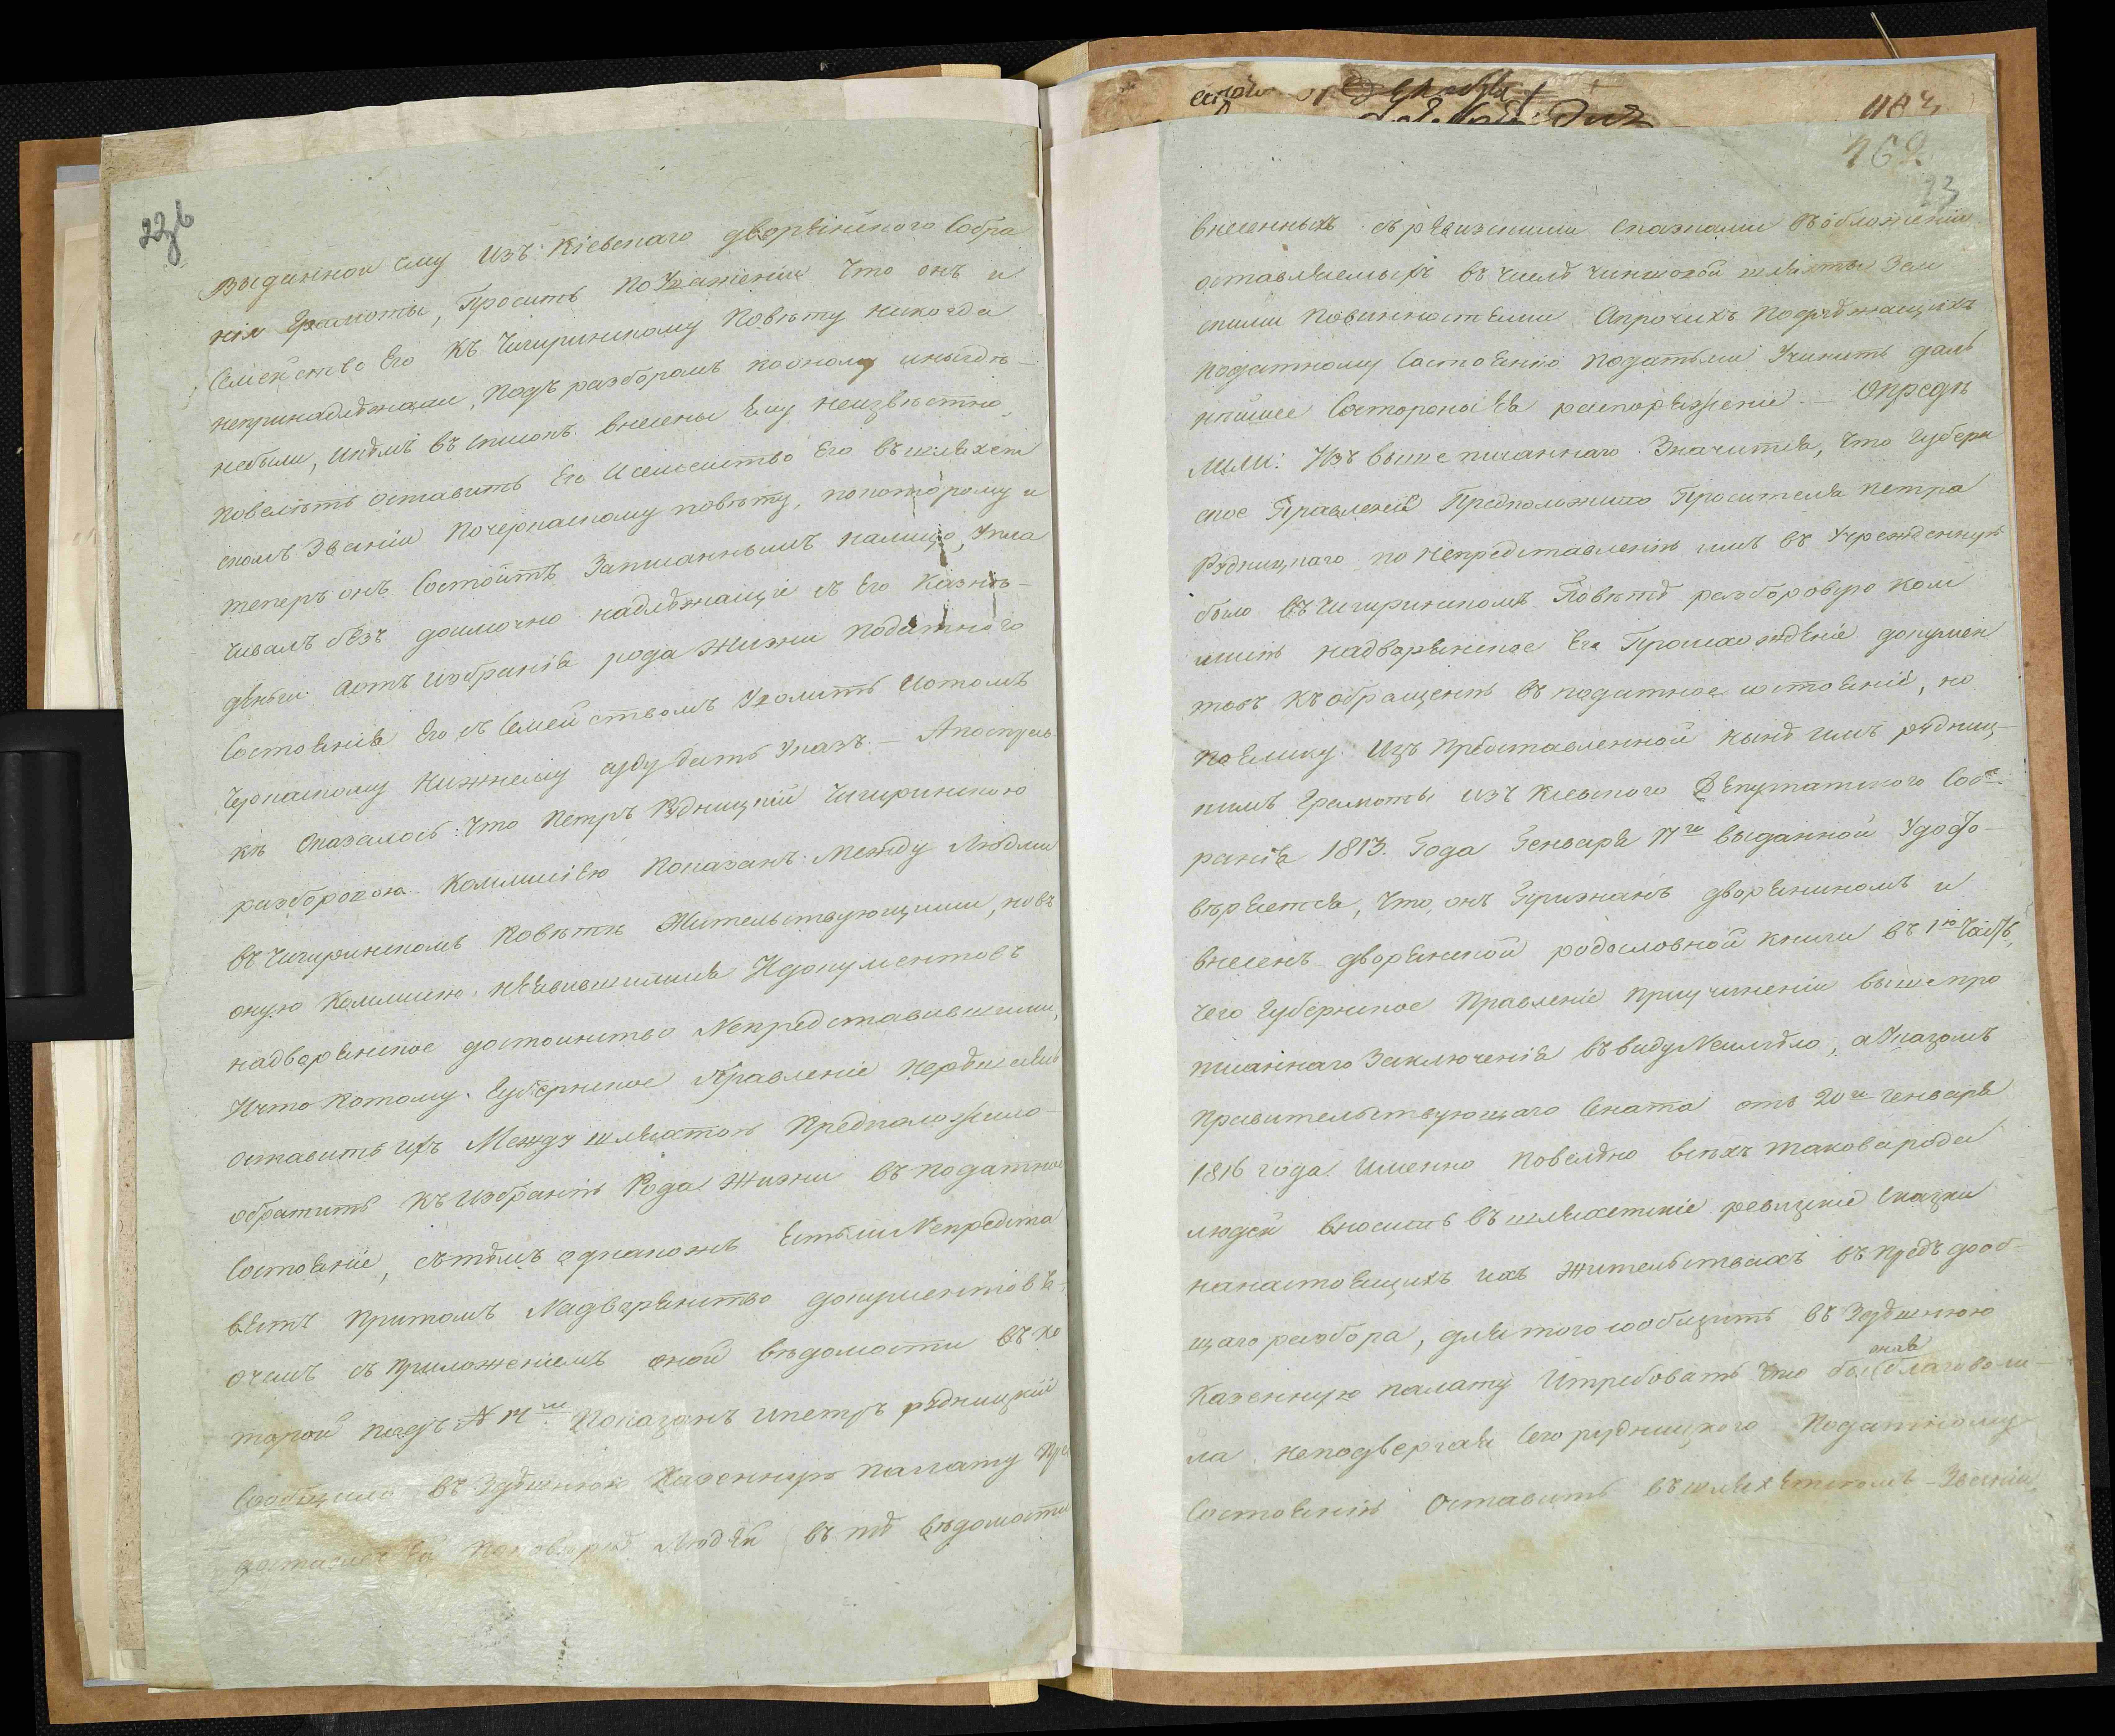 22об
выданной ему Изъ Кіевскаго дворянского Собра
нія Грамоты, Просить по Уваженію Что онъ и
Семейство Его къ Чигиринскому Повѣту никогда
непринадлѣжали, подъ разборомъ по оному иныгдѣ
небыли, икѣмъ въ списокъ внесены Ему неизвѣстно
повелѣть оставить Его Исемейство Его въ шляхет
скомъ Званіи Почеркаскому повѣту, покоторому и
теперъ онъ Состоитъ Записаннымъ налицо, Упла
чивалъ безъ доимочно надлѣжащіе съ Его Казнѣ
деньги Аотъ Избранія рода Жизни податного
Состоянія Его съ Семействомъ Уволить Иотомъ
Черкаскому Нижнему суду дать Указъ – Апосправ
къ Оказалось: Что Петръ Рудницкій Чигиринскою
разборовою Коммисіею Показанъ Между Людми
въ Чигиринскомъ Повѣтѣ Жительствующими, новъ
оную Коммисію неявившимися Идокументовъ
надворянское достоинство Непредставившими,
Ичто потому Губернское Правленіе Нерѣшаясь
оставить ихъ Между шляхтою Предположило
обратить къ Избранію Рода Жизни въ податное
Состояніе, сътѣмъ однакожъ Естьли Непредста
вятъ Притомъ Надворянство документовъ
очемъ съ Приложеніемъ оной вѣдомости въ ко
торой подъ № 17м Показанъ Ипетръ рудницкій
Сообщило въ Здѣшнюю Казенную палату Пре
доставя Ей поповѣркѣ Людей въ тѣ вѣдомости
403
402
23
внесенныхъ съ ревизскими Сказками Въ обложеніи
оставляемыхъ въ числѣ чиншовой шляхты Зем
скими Повинностями Апрочихъ Подлѣжащихъ
податному Состоянію податьми Учинить даль
нѣйшее Состороны Ея распоряженіе – Опредѣ
лили: Изъ вышеписаннаго Значится, Что Губерн
ское Правленіе Предположило Просителя Петра
Рудницкаго по Непредставленію имъ въ Учрежденную
было въ Чигиринскомъ Повѣтѣ разборовую Ком
мисію надворянское Его Происхожденіе докумен
товъ Къ обращенію въ податное состояніе, но
поелику Изъ Представленной нынѣ имъ рудниц
кимъ Грамоты изъ Кіевского Депутатского Соб
ранія 1813. Года Генваря 17го выданной Удосто
вѣряется, Что онъ Признанъ дворяниномъ и
внесенъ дворянской родословной книги въ 1ю Часть,
Чего Губернское Правленіе Приучиненіи вышепро
писаннаго Заключенія въ виду Неимѣло, а Указомъ
Правительствующаго Сената отъ 20го Генваря
1816 года Именно Повелѣно всѣхъ таковарода
людей вносить въ шляхетскіе ревизкіе Сказки
нанастоящихъ ихъ Жительствахъ въ предъ дооб
щаго разбора, длятого сообщить въ Здѣшнюю
Казенную палату Итребовать Что бы оная благоволи
ла неподвергая Сего рудницкого Податному
Состоянію Оставить въ шляхетскомъ Званіи